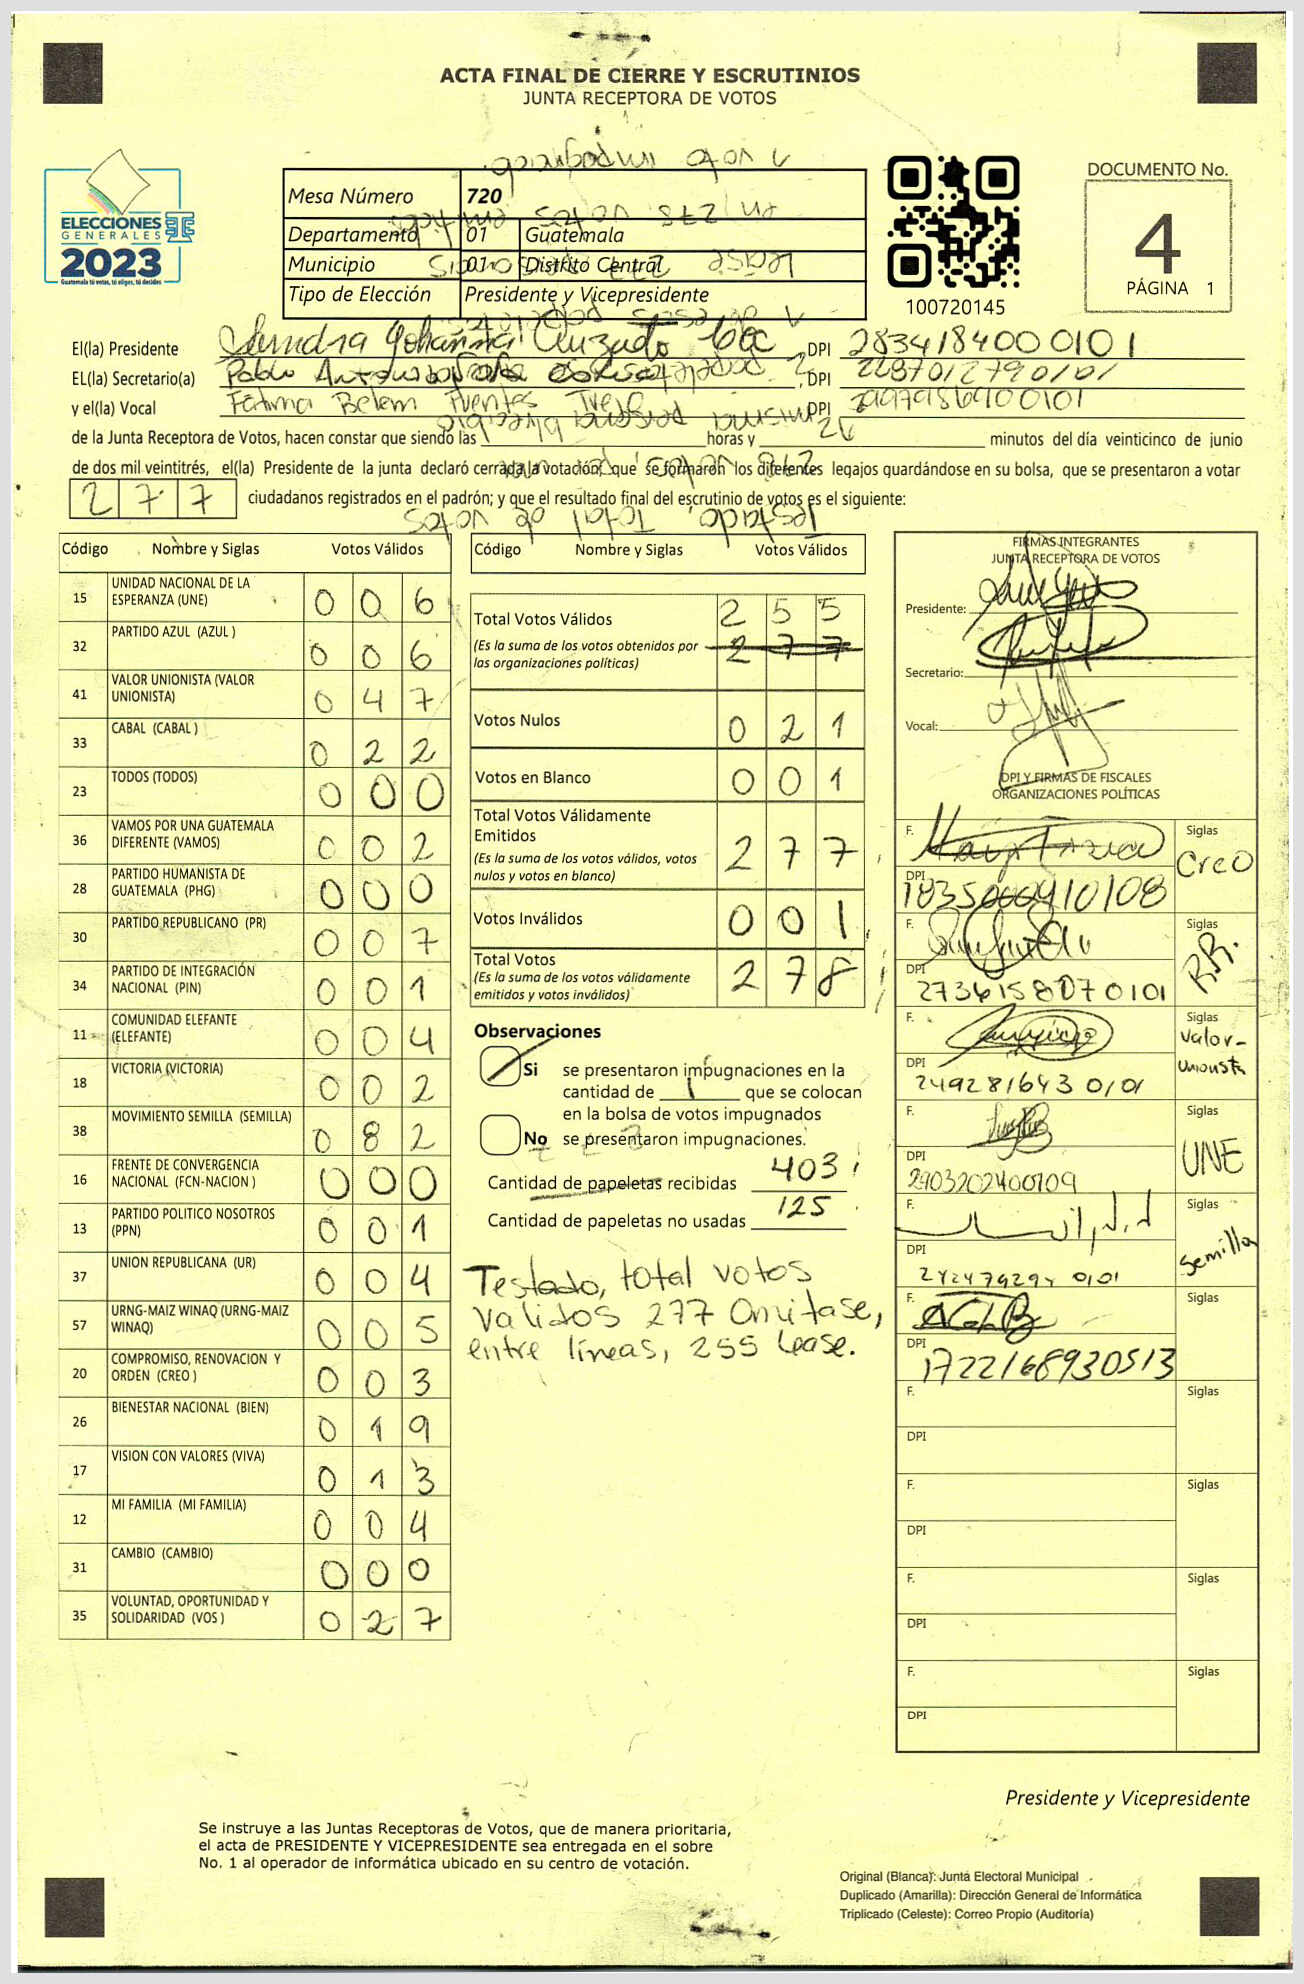 ACTA FINAL DE CIERRE Y ESCRUTINIOS
JUNTA RECEPTORA DE VOTOS
ELECCIONES
GENERALES
2023
Guatemala tú votas, tú eliges, tú decides
Mesa Número 720
Departamento 01 Guatemala
Municipio 01 Distrito Central
Tipo de Elección Presidente y Vicepresidente
100720145
DOCUMENTO No.
4
PÁGINA 1
El(la) Presidente DPI 2834184000101
EL(la) Secretario(a) Pablo DPI
y el(la) Vocal Fátima Belem Fuentes DPI
de la Junta Receptora de Votos, hacen constar que siendo las horas y minutos del día veinticinco de junio
de dos mil veintitrés, el(la) Presidente de la junta declaró cerrada la votación; que se formaron los diferentes legajos guardándose en su bolsa, que se presentaron a votar
277 ciudadanos registrados en el padrón; y que el resultado final del escrutinio de votos es el siguiente:
Testado, Total de votos
Código Nombre y Siglas Votos Válidos
15 UNIDAD NACIONAL DE LA ESPERANZA (UNE) 0 0 6
32 PARTIDO AZUL (AZUL ) 0 0 6
41 VALOR UNIONISTA (VALOR UNIONISTA) 0 4 7
33 CABAL (CABAL ) 0 2 2
23 TODOS (TODOS) 0 0 0
36 VAMOS POR UNA GUATEMALA DIFERENTE (VAMOS) 0 0 2
28 PARTIDO HUMANISTA DE GUATEMALA (PHG) 0 0 0
30 PARTIDO REPUBLICANO (PR) 0 0 7
34 PARTIDO DE INTEGRACIÓN NACIONAL (PIN) 0 0 1
11 COMUNIDAD ELEFANTE (ELEFANTE) 0 0 4
18 VICTORIA (VICTORIA) 0 0 2
38 MOVIMIENTO SEMILLA (SEMILLA) 0 8 2
16 FRENTE DE CONVERGENCIA NACIONAL (FCN-NACION ) 0 0 0
13 PARTIDO POLITICO NOSOTROS (PPN) 0 0 1
37 UNION REPUBLICANA (UR) 0 0 4
57 URNG-MAIZ WINAQ (URNG-MAIZ WINAQ) 0 0 5
20 COMPROMISO, RENOVACION Y ORDEN (CREO ) 0 0 3
26 BIENESTAR NACIONAL (BIEN) 0 1 9
17 VISION CON VALORES (VIVA) 0 1 3
12 MI FAMILIA (MI FAMILIA) 0 0 4
31 CAMBIO (CAMBIO) 0 0 0
35 VOLUNTAD, OPORTUNIDAD Y SOLIDARIDAD (VOS ) 0 2 7
Código Nombre y Siglas Votos Válidos
Total Votos Válidos 2 5 5
(Es la suma de los votos obtenidos por las organizaciones políticas) 2 7 7
Votos Nulos 0 2 1
Votos en Blanco 0 0 1
Total Votos Válidamente Emitidos 2 7 7
(Es la suma de los votos válidos, votos nulos y votos en blanco)
Votos Inválidos 0 0 1
Total Votos 2 7 8
(Es la suma de los votos válidamente emitidos y votos inválidos)
Observaciones
Si se presentaron impugnaciones en la
cantidad de 1 que se colocan
en la bolsa de votos impugnados
No se presentaron impugnaciones.
Cantidad de papeletas recibidas 403
Cantidad de papeletas no usadas 125
Testado, total votos
validos 277 Omitase,
entre líneas, 255 Lease.
FIRMAS INTEGRANTES
JUNTA RECEPTORA DE VOTOS
Presidente:
Secretario:
Vocal:
DPI Y FIRMAS DE FISCALES
ORGANIZACIONES POLÍTICAS
F. Siglas Creo
DPI
F. Siglas P.R.
DPI 2736158070101
F. Siglas Valor-Unionista
DPI 2492816430101
F. Siglas UNE
DPI 2903202400109
F. Siglas Semilla
DPI
F. Siglas
DPI 1722168930513
F. Siglas
DPI
F. Siglas
DPI
F. Siglas
DPI
F. Siglas
DPI
Presidente y Vicepresidente
Se instruye a las Juntas Receptoras de Votos, que de manera prioritaria,
el acta de PRESIDENTE Y VICEPRESIDENTE sea entregada en el sobre
No. 1 al operador de informática ubicado en su centro de votación.
Original (Blanca): Junta Electoral Municipal
Duplicado (Amarilla): Dirección General de Informática
Triplicado (Celeste): Correo Propio (Auditoría)